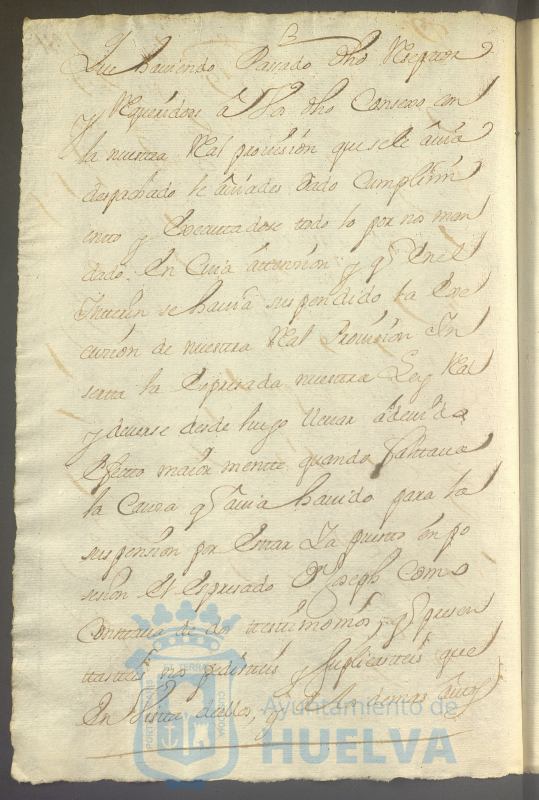 Que haviendo Passado dho Rexptor
y Requeridose â Vos dho Consexo con
la nuestra Real provission que se le avia
despachado le aviades dado Cumplim
iento y Executadose todo lo por nos man
dado. En Cuia attension y qe En el
Interin se havia suspendido la Exe
cusion de nuestra Real Provission In
serta la Espresada nuestra Ley Real
y deverse desde luego llevar a devido
Efecto maior mente quando faltava
la Causa qe avia havido para la
suspension por Estar Ya puesto en po
sesion El Espresado Dn Joseph Como
Constava de dos testimonios qe presen
tasteis nos pedisteis y suplicasteis que
En Vista dellos, y de los demas autos
Ayuntamiento de
HUELVA